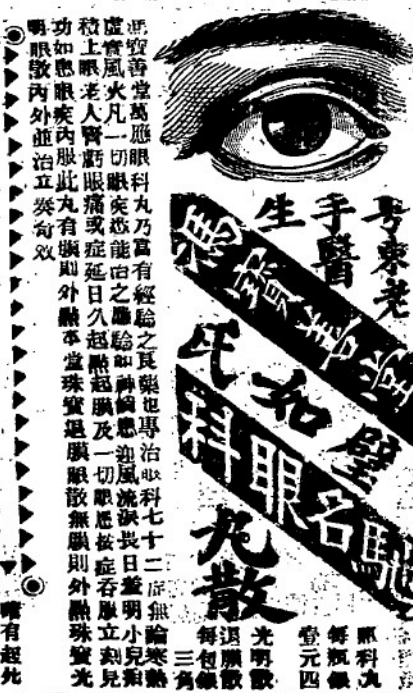 粤東老
手醫
生
馮寶善堂
璧如氏
馳名眼科
丸散
眼科丸
每瓶銀
壹元四
光明散
退膜散
每包銀
三角
馮寶善堂萬應眼科丸乃富有經驗之良藥也專治眼科七十二症無論寒熱
虛實風火凡一切眼疾悉能治之應驗如神倘患迎風流淚畏日羞明小兒疳
積上眼老人腎虧眼痛或症延日久起點起膜及一切眼患按症吞服立刻見
功如患眼疾內服此丸有膜則外點本堂珠寶退膜眼散無膜則外點珠寶光
明眼散內外並治立奏奇效
有起